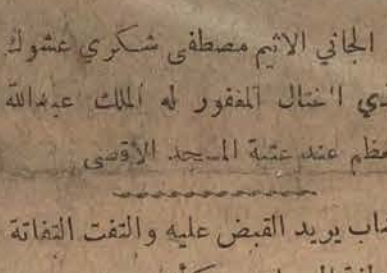 الجاني الاثيم مصطفى شكري عشوك
ذي اغتال المغفور له الملك عبدالله
عظم عند عتبة المسجد الاقصى
اب يريد القبض عليه والتفت التفاتة